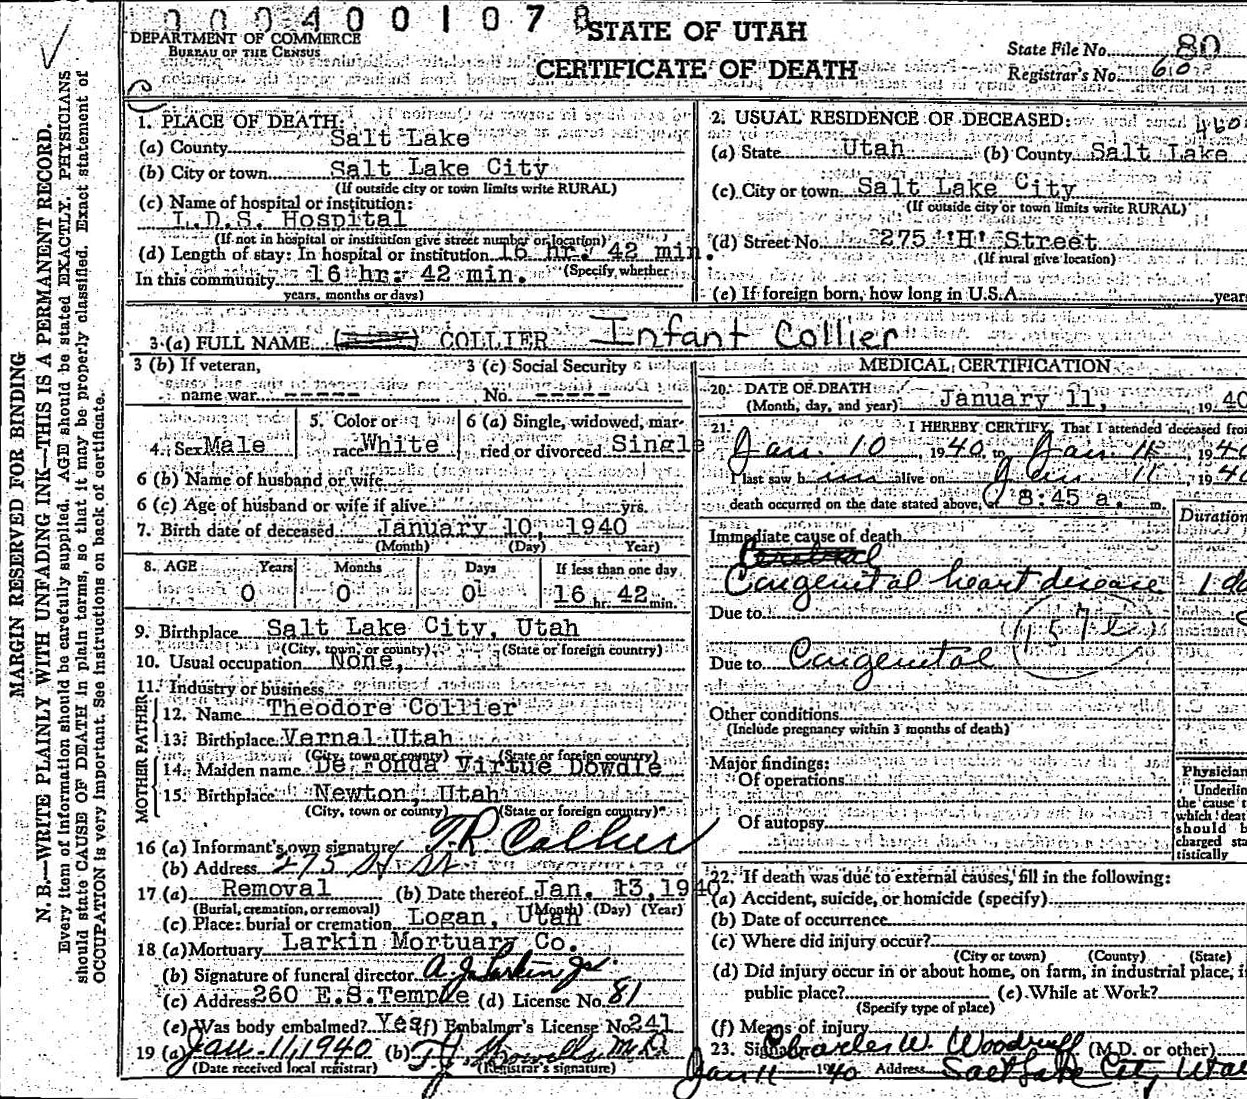 0004001078
DEPARTMENT OF COMMERCE
BUREAU OF THE CENSUS
STATE OF UTAH
CERTIFICATE OF DEATH
State File No. 80
Registrar's No. 60
MARGIN RESERVED FOR BINDING
N. B.—WRITE PLAINLY WITH UNFADING INK—THIS IS A PERMANENT RECORD.
Every item of information should be carefully supplied. AGE should be stated EXACTLY. PHYSICIANS
should state CAUSE OF DEATH in plain terms, so that it may be properly classified. Exact statement of
OCCUPATION is very important. See instructions on back of certificate.
1. PLACE OF DEATH:
(a) County Salt Lake
(b) City or town Salt Lake City
(If outside city or town limits write RURAL)
(c) Name of hospital or institution:
L.D.S. Hospital
(If not in hospital or institution give street number or location)
(d) Length of stay: In hospital or institution 16 hr. 42 min.
(Specify whether
In this community 16 hr. 42 min.
years, months or days)
2. USUAL RESIDENCE OF DECEASED:
(a) State Utah (b) County Salt Lake
(c) City or town Salt Lake City
(If outside city or town limits write RURAL)
(d) Street No. 275 "H" Street
(If rural give location)
(e) If foreign born, how long in U.S.A. years
3 (a) FULL NAME COLLIER Infant Collier
3 (b) If veteran,
name war -----
3 (c) Social Security
No. -----
4. Sex Male
5. Color or
race White
6 (a) Single, widowed, mar-
ried or divorced Single
6 (b) Name of husband or wife
6 (c) Age of husband or wife if alive yrs.
7. Birth date of deceased January 10, 1940
(Month) (Day) Year)
8. AGE Years Months Days If less than one day
0 0 0 16 hr. 42 min.
9. Birthplace Salt Lake City, Utah
(City, town, or county) (State or foreign country)
10. Usual occupation None,
11. Industry or business
FATHER
12. Name Theodore Collier
13. Birthplace Vernal Utah
(City, town or county) (State or foreign country)
MOTHER
14. Maiden name De Fonda Virtue Dowdle
15. Birthplace Newton, Utah
(City, town or county) (State or foreign country)
16 (a) Informant's own signature T.R. Collier
(b) Address 275 H St
17 (a) Removal (b) Date thereof Jan. 13, 1940
(Burial, cremation, or removal) (Month) (Day) (Year)
(c) Place: burial or cremation Logan, Utah
18 (a) Mortuary Larkin Mortuary Co.
(b) Signature of funeral director A. J. Larkin Jr.
(c) Address 260 E.S.Temple (d) License No. 81
(e) Was body embalmed? Yes (f) Embalmer's License No. 241
19 (a) Jan. 11, 1940 (b) M.D.
(Date received local registrar) (Registrar's signature)
MEDICAL CERTIFICATION
20. DATE OF DEATH
(Month, day, and year) January 11, 1940
21. I HEREBY CERTIFY, That I attended deceased from
Jan. 10, 1940, to Jan. 11, 1940
I last saw him alive on Jan. 11, 1940
death occurred on the date stated above, at 8:45 a. m.
Duration
Immediate cause of death
Congenital heart disease 1 da
Due to
157
Due to Congenital
Other conditions
(Include pregnancy within 3 months of death)
Major findings:
Of operations
Of autopsy
Physician
Underlin
the cause t
which deat
should b
charged sta
tistically
22. If death was due to external causes, fill in the following:
(a) Accident, suicide, or homicide (specify)
(b) Date of occurrence
(c) Where did injury occur?
(City or town) (County) (State)
(d) Did injury occur in or about home, on farm, in industrial place, i
public place? (e) While at Work?
(Specify type of place)
(f) Means of injury
23. Signature Charles W. Woodruff (M.D. or other)
Jan 11 1940 Address Salt Lake City Utah